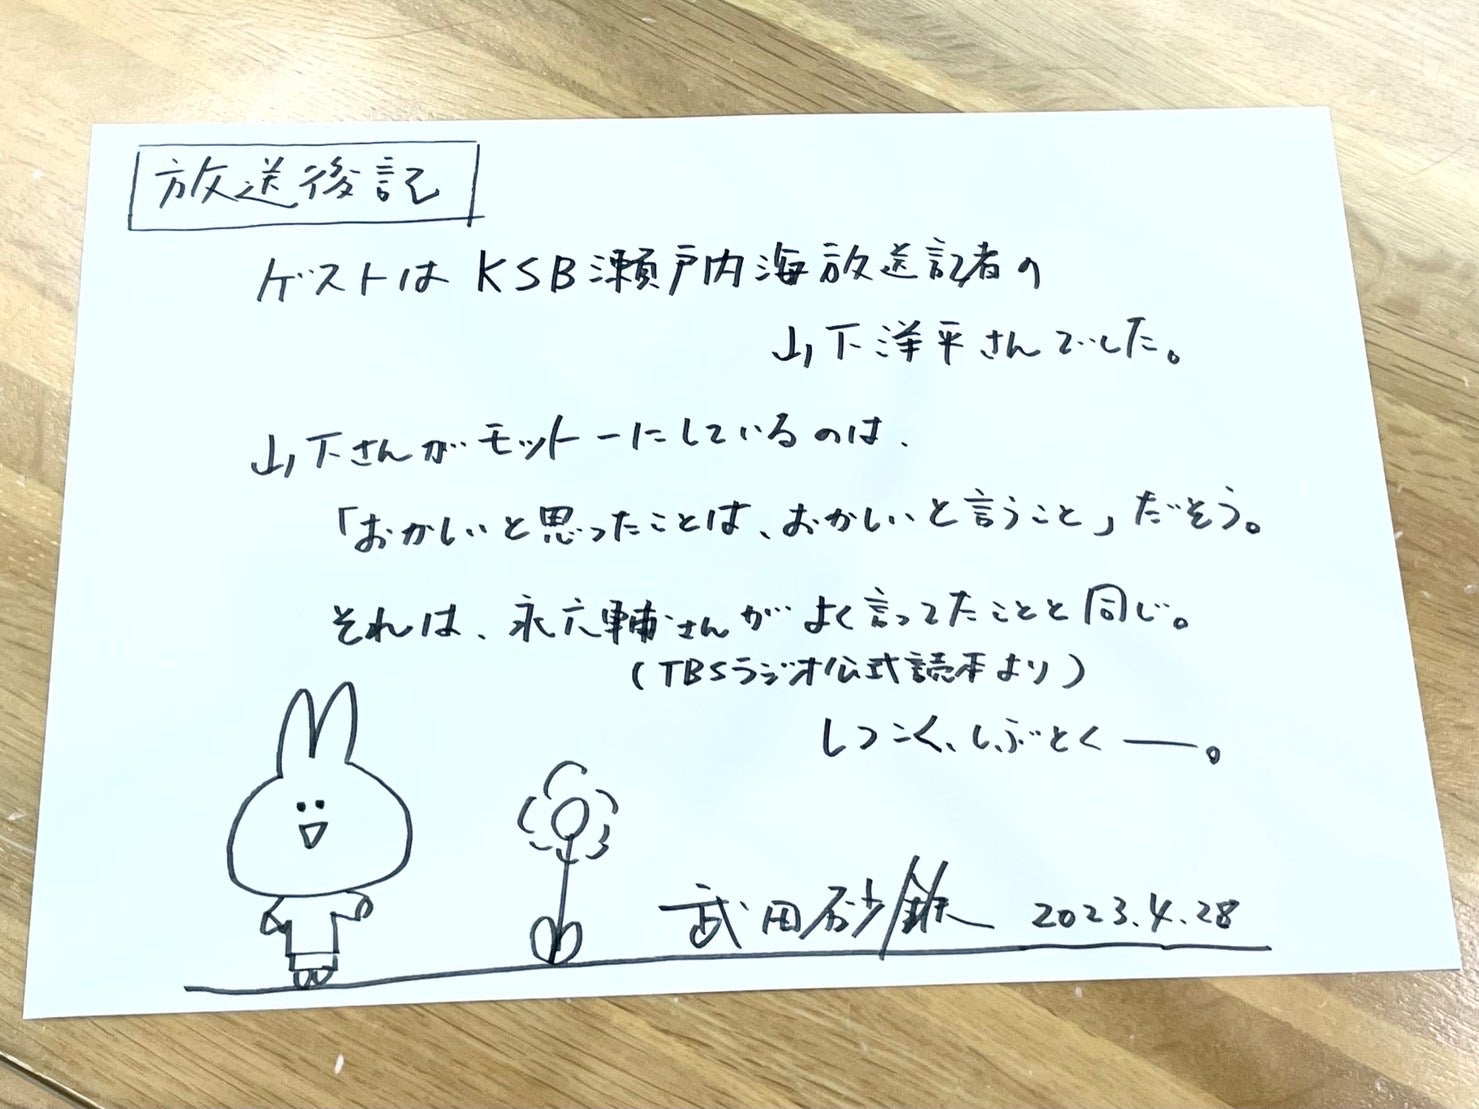 放送後記
ゲストはKSB瀬戸内海放送記者の
山下洋平さんでした。
山下さんがモットーにしているのは、
「おかしいと思ったことは、おかしいと言うこと」だそう。
それは、永六輔さんがよく言ってたことと同じ。
(TBSラジオ公式読本より)
しつこく、しぶとく──。
武田砂鉄 2023.4.28